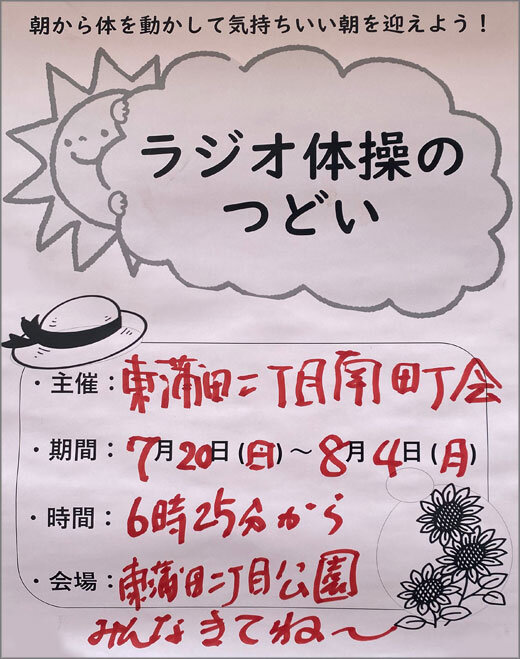 朝から体を動かして気持ちいい朝を迎えよう！
ラジオ体操の
つどい
・主催：東蒲田二丁目南町会
・期間：7月20日(日)～8月4日(月)
・時間：6時25分から
・会場：東蒲田二丁目公園
みんなきてね～